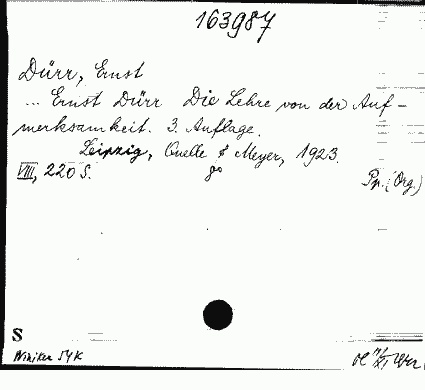 163987
Dürr, Ernst
... Ernst Dürr Die Lehre von der Auf-
merksamkeit. 3. Auflage.
Leipzig, Quelle & Meyer, 1923.
VIII, 220 S. 8°
Pp. (Org.)
S